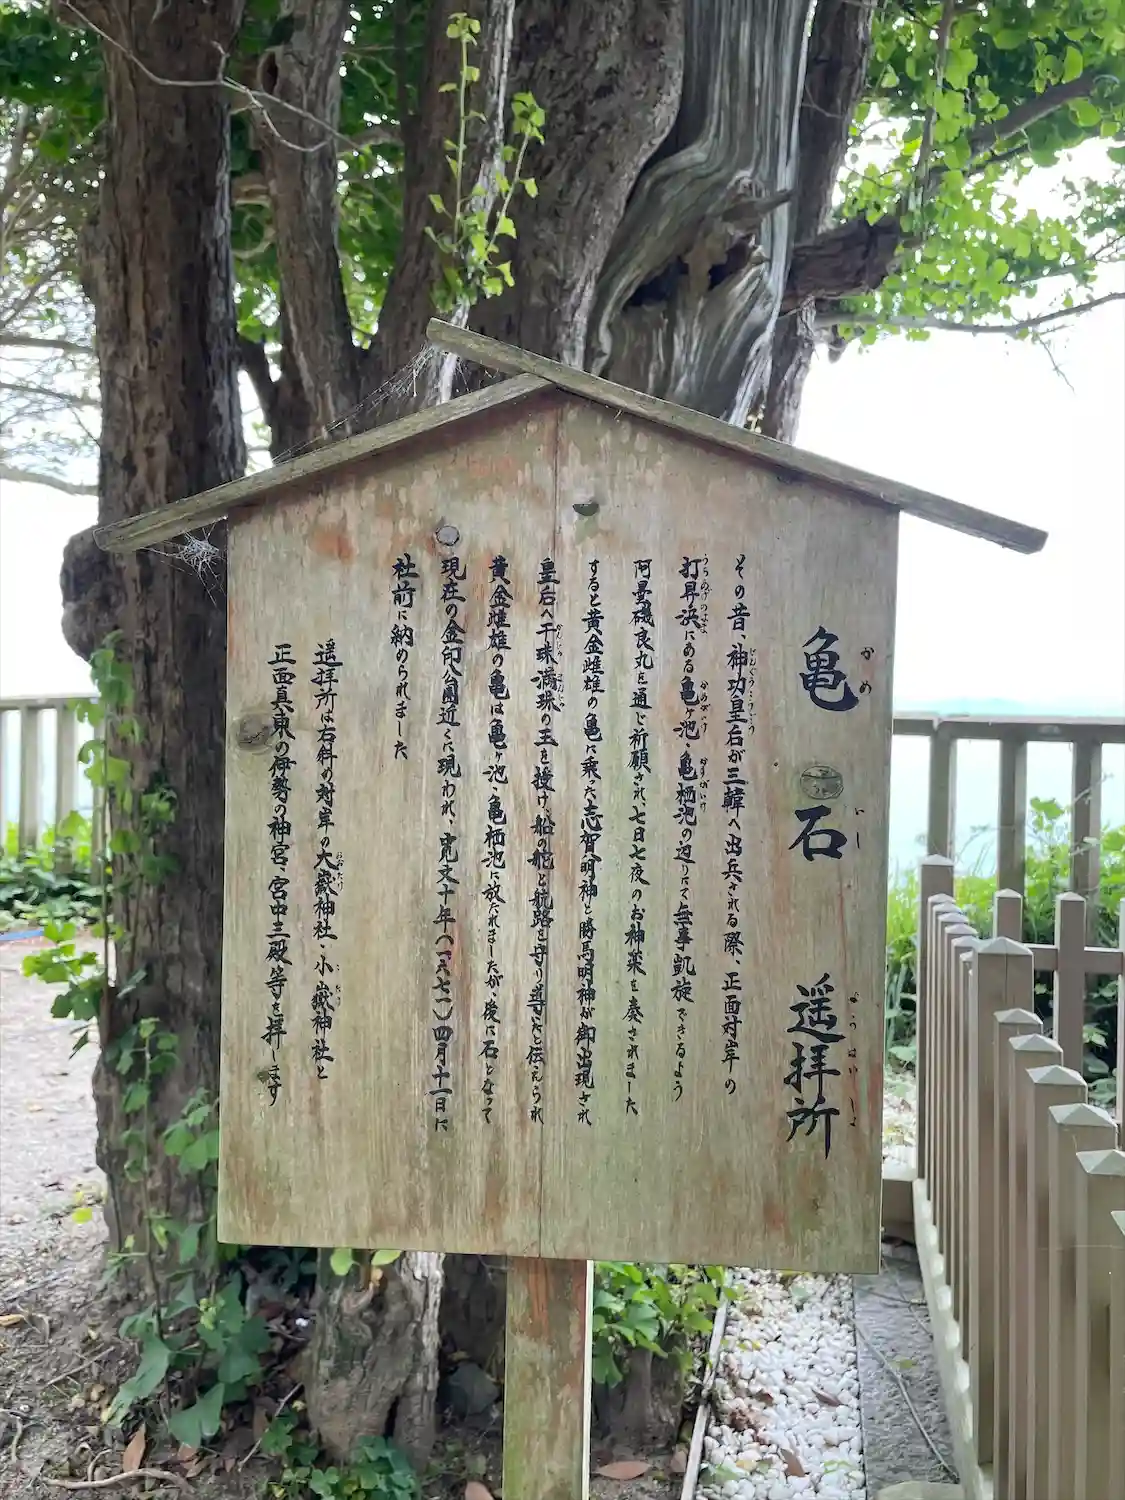 亀石 遥拝所
その昔、神功皇后が三韓へ出兵される際、正面対岸の
打昇浜にある亀ヶ池・亀栖池の辺りにて無事凱旋できるよう
阿曇磯良丸を通じ祈願され、七日七夜のお神楽を奏されました
すると黄金雌雄の亀に乗った志賀明神と勝馬明神が御出現され
皇后へ干珠満珠の玉を授け、船の舵と航路を守り導いたと伝えられ
黄金雌雄の亀は亀ヶ池・亀栖池に放たれましたが、後に石となって
現在の金印公園近くに現われ、寛文十年（一六七一）四月十一日に
社前に納められました
遥拝所は右斜め対岸の大嶽神社・小嶽神社と
正面真東の伊勢の神宮、宮中三殿等を拝します